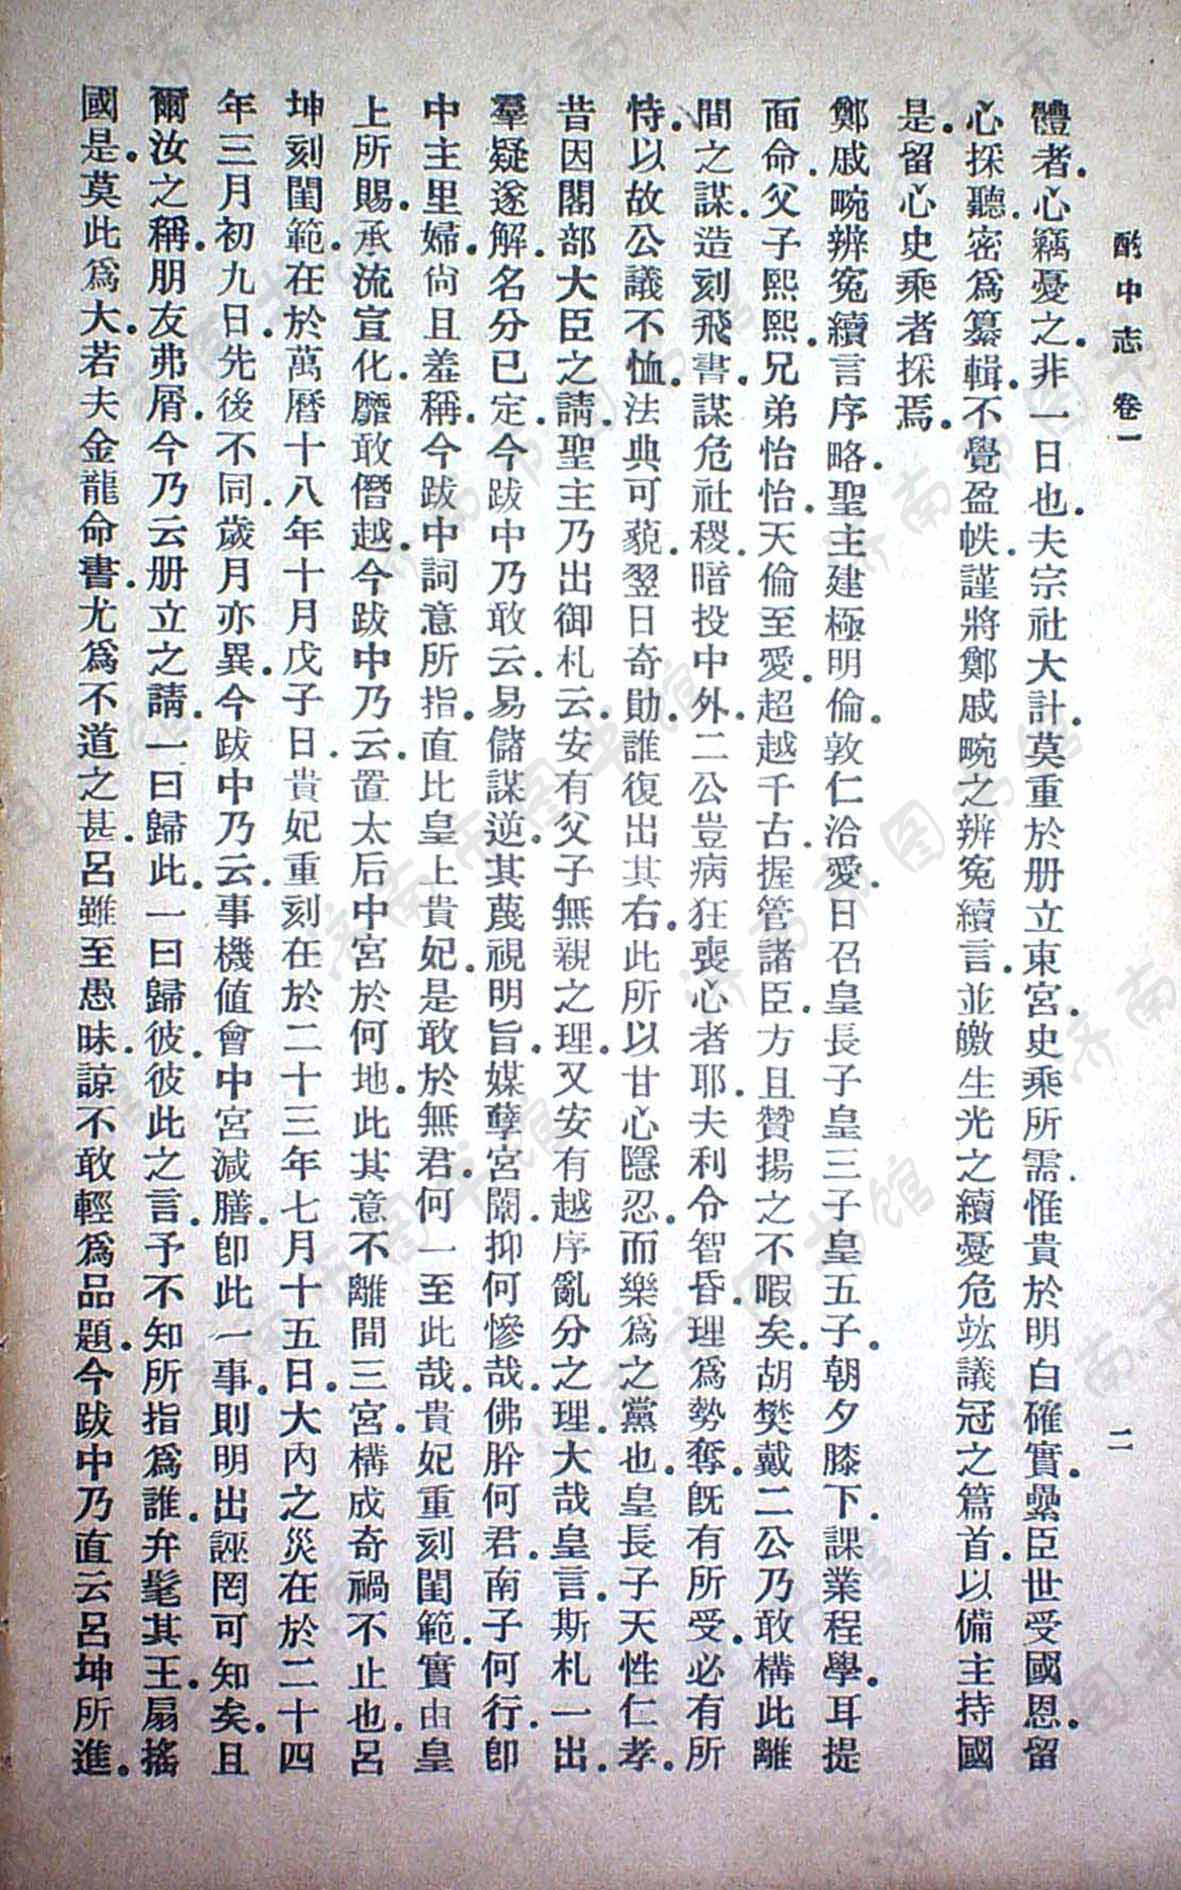 酌中志 卷一 二
體者.心竊憂之.非一日也.夫宗社大計.莫重於册立東宮.史乘所需.惟貴於明白確實.纍臣世受國恩.留
心採聽.密爲纂輯.不覺盈帙.謹將鄭戚畹之辨冤續言.並繳生光之續憂危竑議冠之篇首.以備主持國
是.留心史乘者採焉.
鄭戚畹辨冤續言序略.聖主建極明倫.敦仁洽愛.日召皇長子皇三子皇五子.朝夕膝下.課業程學.耳提
面命.父子熙熙.兄弟怡怡.天倫至愛.超越千古.握管諸臣.方且贊揚之不暇矣.胡樊戴二公.乃敢構此離
間之謀.造刻飛書.謀危社稷.暗投中外.二公豈病狂喪心者耶.夫利令智昏.理爲勢奪.旣有所受.必有所
恃.以故公議不恤.法典可藐.翌日奇勛.誰復出其右.此所以甘心隱忍.而樂爲之黨也.皇長子天性仁孝.
昔因閣部大臣之請.聖主乃出御札云.安有父子無親之理.又安有越序亂分之理.大哉皇言.斯札一出.
羣疑遂解.名分已定.今跋中乃敢云.易儲謀逆.其蔑視明旨.媒孽宮闈.抑何慘哉.佛肸何君.南子何行.卽
中主里婦.尙且羞稱.今跋中詞意所指.直比皇上貴妃.是敢於無君.何一至此哉.貴妃重刻閨範.實由皇
上所賜.承流宣化.靡敢僭越.今跋中乃云.置太后中宮於何地.此其意不離間三宮.構成奇禍不止也.呂
坤刻閨範.在於萬曆十八年十月戊子日.貴妃重刻在於二十三年七月十五日.大內之災在於二十四
年三月初九日.先後不同.歲月亦異.今跋中乃云.事機値會.中宮減膳.卽此一事.則明出誣罔可知矣.且
爾汝之稱.朋友弗屑.今乃云册立之請.一曰歸此.一曰歸彼.彼此之言.予不知所指爲誰.弁髦其王.扇搖
國是.莫此爲大.若夫金龍命書.尤爲不道之甚.呂雖至愚昧.諒不敢輕爲品題.今跋中乃直云呂坤所進.